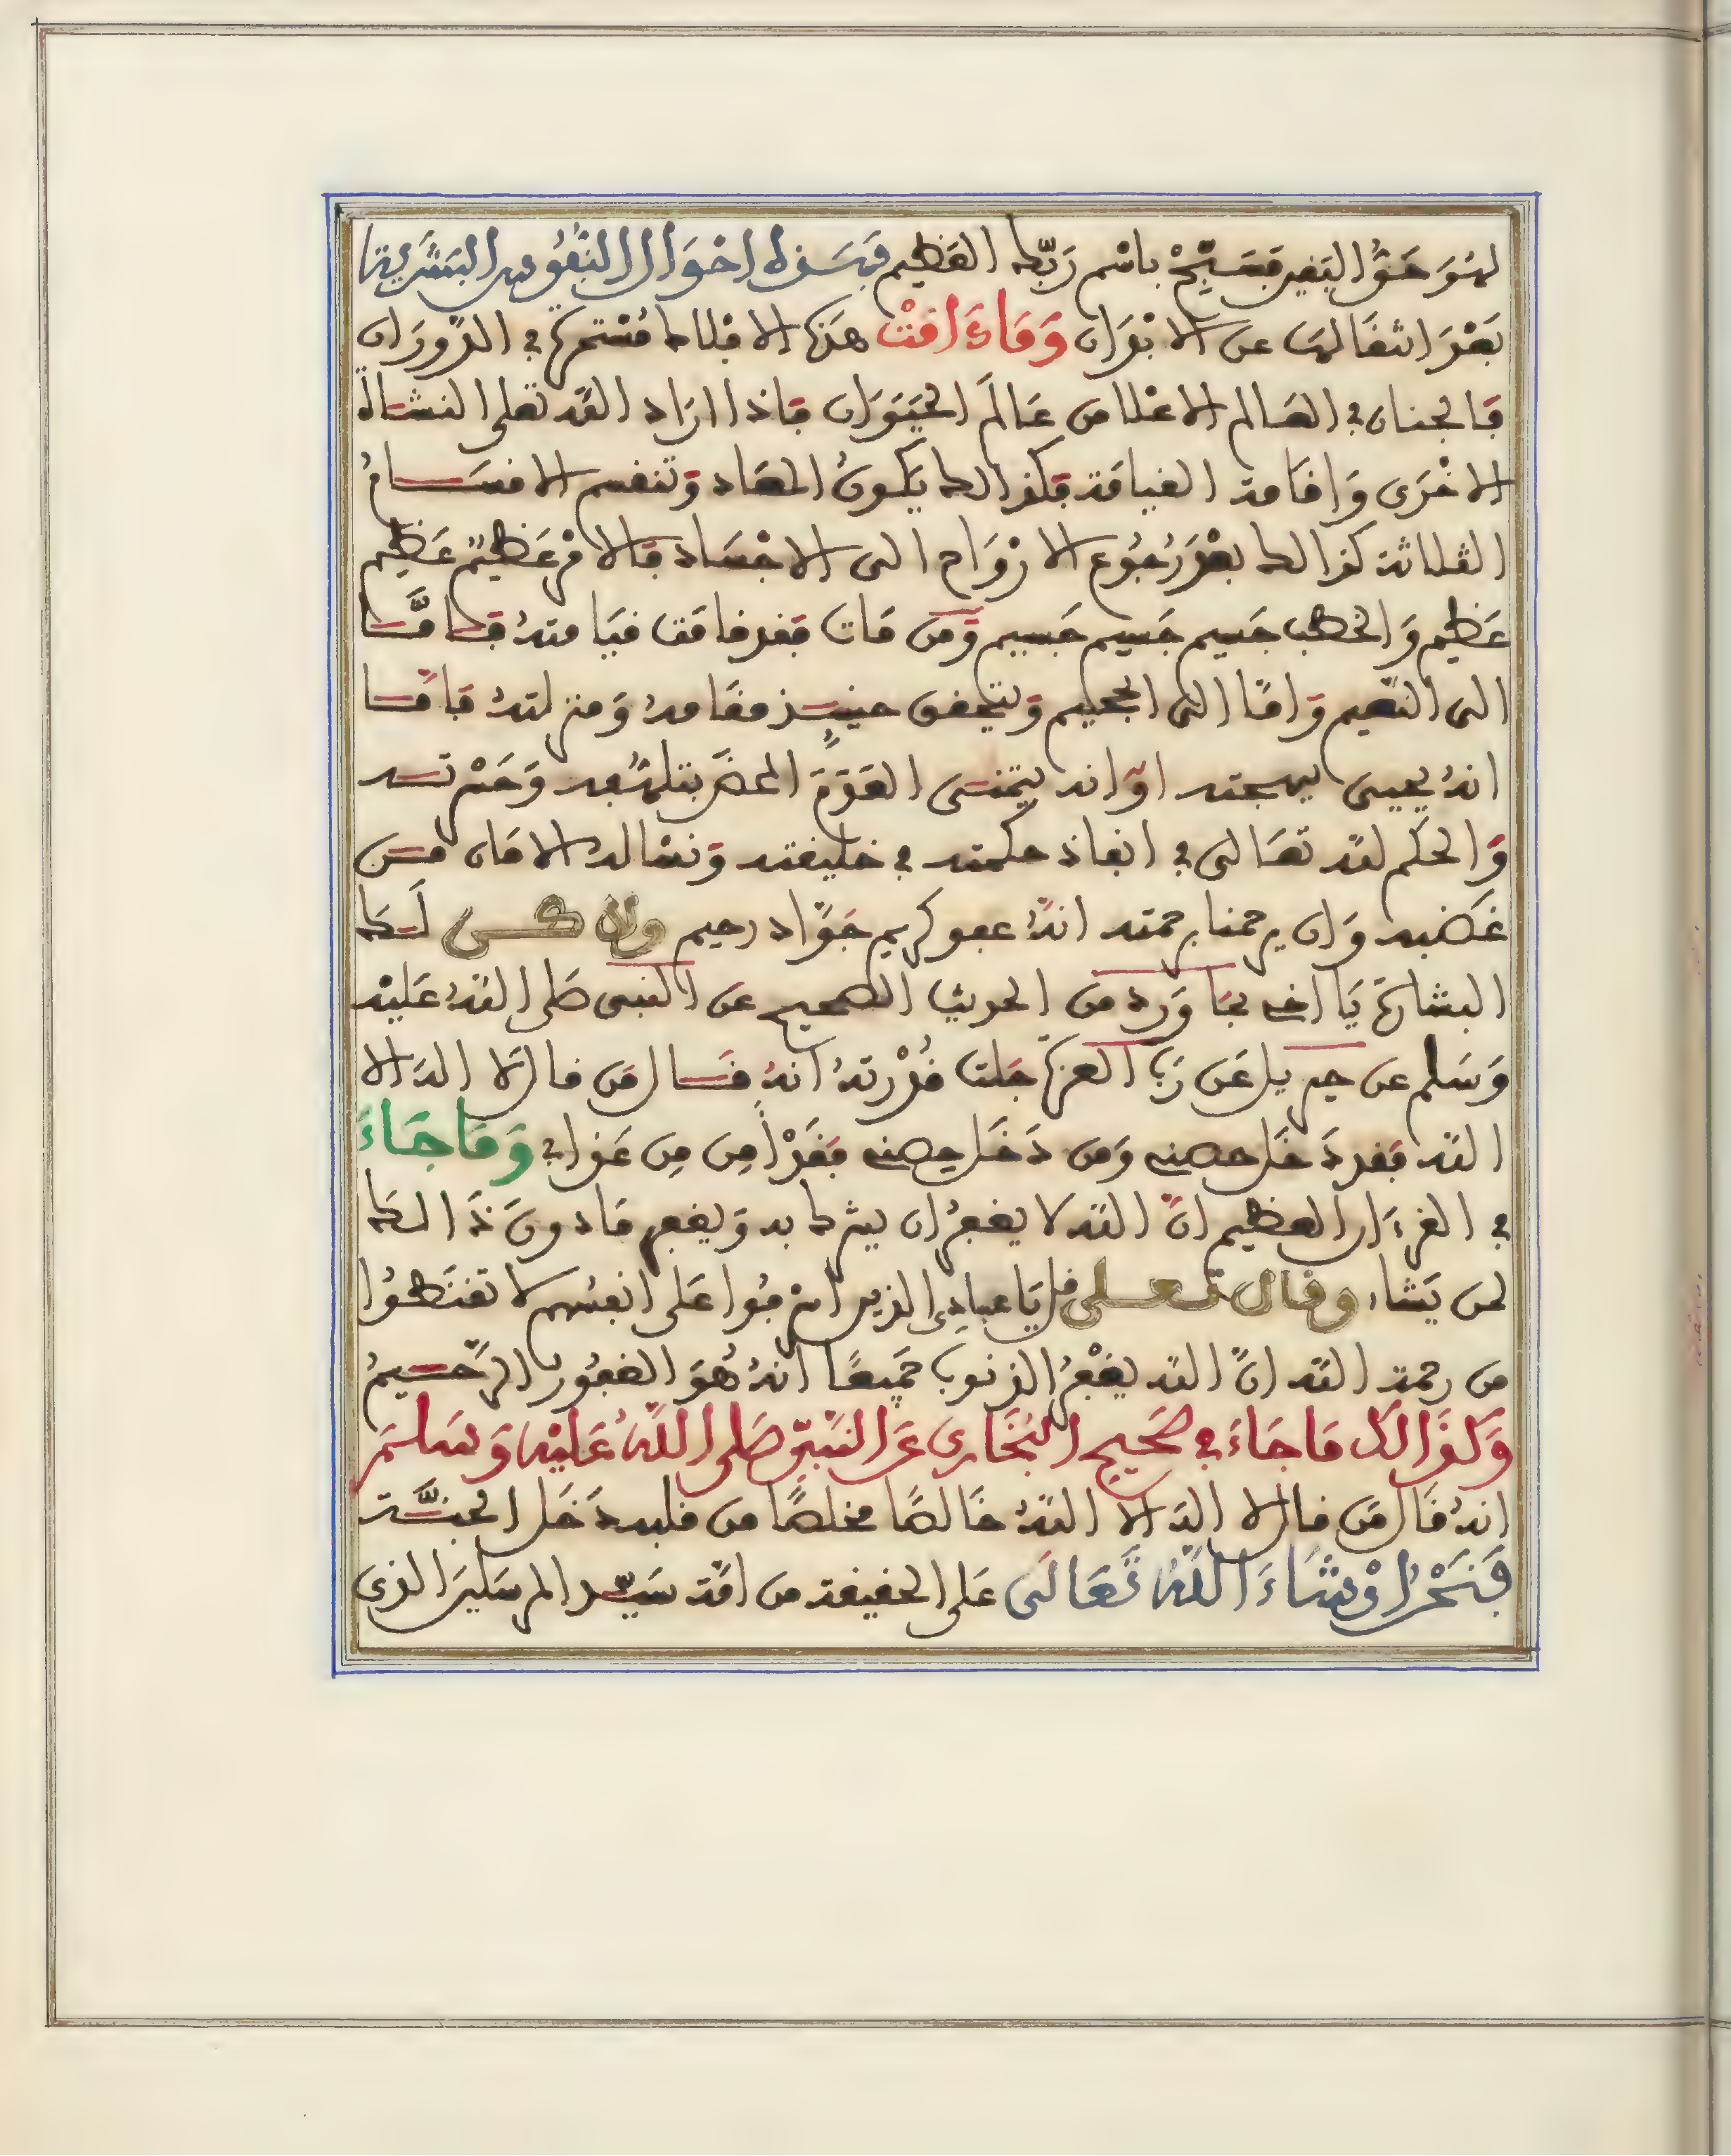 لهو حق اليقين فسبح باسم ربك العظيم فهذه احوال النفوس البشرية
بعد انتقالها عن الابدان وما دامت هذه الافلاك مستمرة في الدوران
فالجنان في العالم الاعلا من عالم الحيوان فاذا اراد الله تعلى النشاة
الاخرى واقامة القيامة فكذالك يكون المعاد وتنقسم الاقسام
الثلاثة كذالك بعد رجوع الارواح الى الاجساد فالامر عظيم عظيم
عظيم والخطب جسيم جسيم جسيم ومن مات فقد قامت قيامته فاما
الى النعيم واما الى الجحيم ويتحقق حينيذ مقامه ومنزلته فاما
انه يحيى بمهجته او انه يتمنى العدم المحض بتلهفه وحسرته
والحكم لله تعالى في انفاذ حكمته في خليقته ونساله الامان من
غضبه وان يرحمنا برحمته انه عفو كريم جواد رحيم ولاكن لك
البشارة يا اخي بما ورد من الحديث الصحيح عن النبي صلى الله عليه
وسلم عن جبريل عن رب العزة جلت قدرته انه قال من قال لا اله الا
الله فقد دخل حصني ومن دخل حصني فقد امن من عذابي وما جاء
في القرءان العظيم ان الله لا يغفر ان يشرك به ويغفر ما دون ذالك
لمن يشاء وقال تعلى قل يا عبادي الذين اسرفوا على انفسهم لا تقنطوا
من رحمة الله ان الله يغفر الذنوب جميعا انه هو الغفور الرحيم
وكذالك ما جاء في صحيح البخاري عن النبي صلى الله عليه وسلم
انه قال من قال لا اله الا الله خالصا مخلصا من قلبه دخل الجنة
فنحن ان شاء الله تعالى على الحقيقة من امة سيد المرسلين الذي